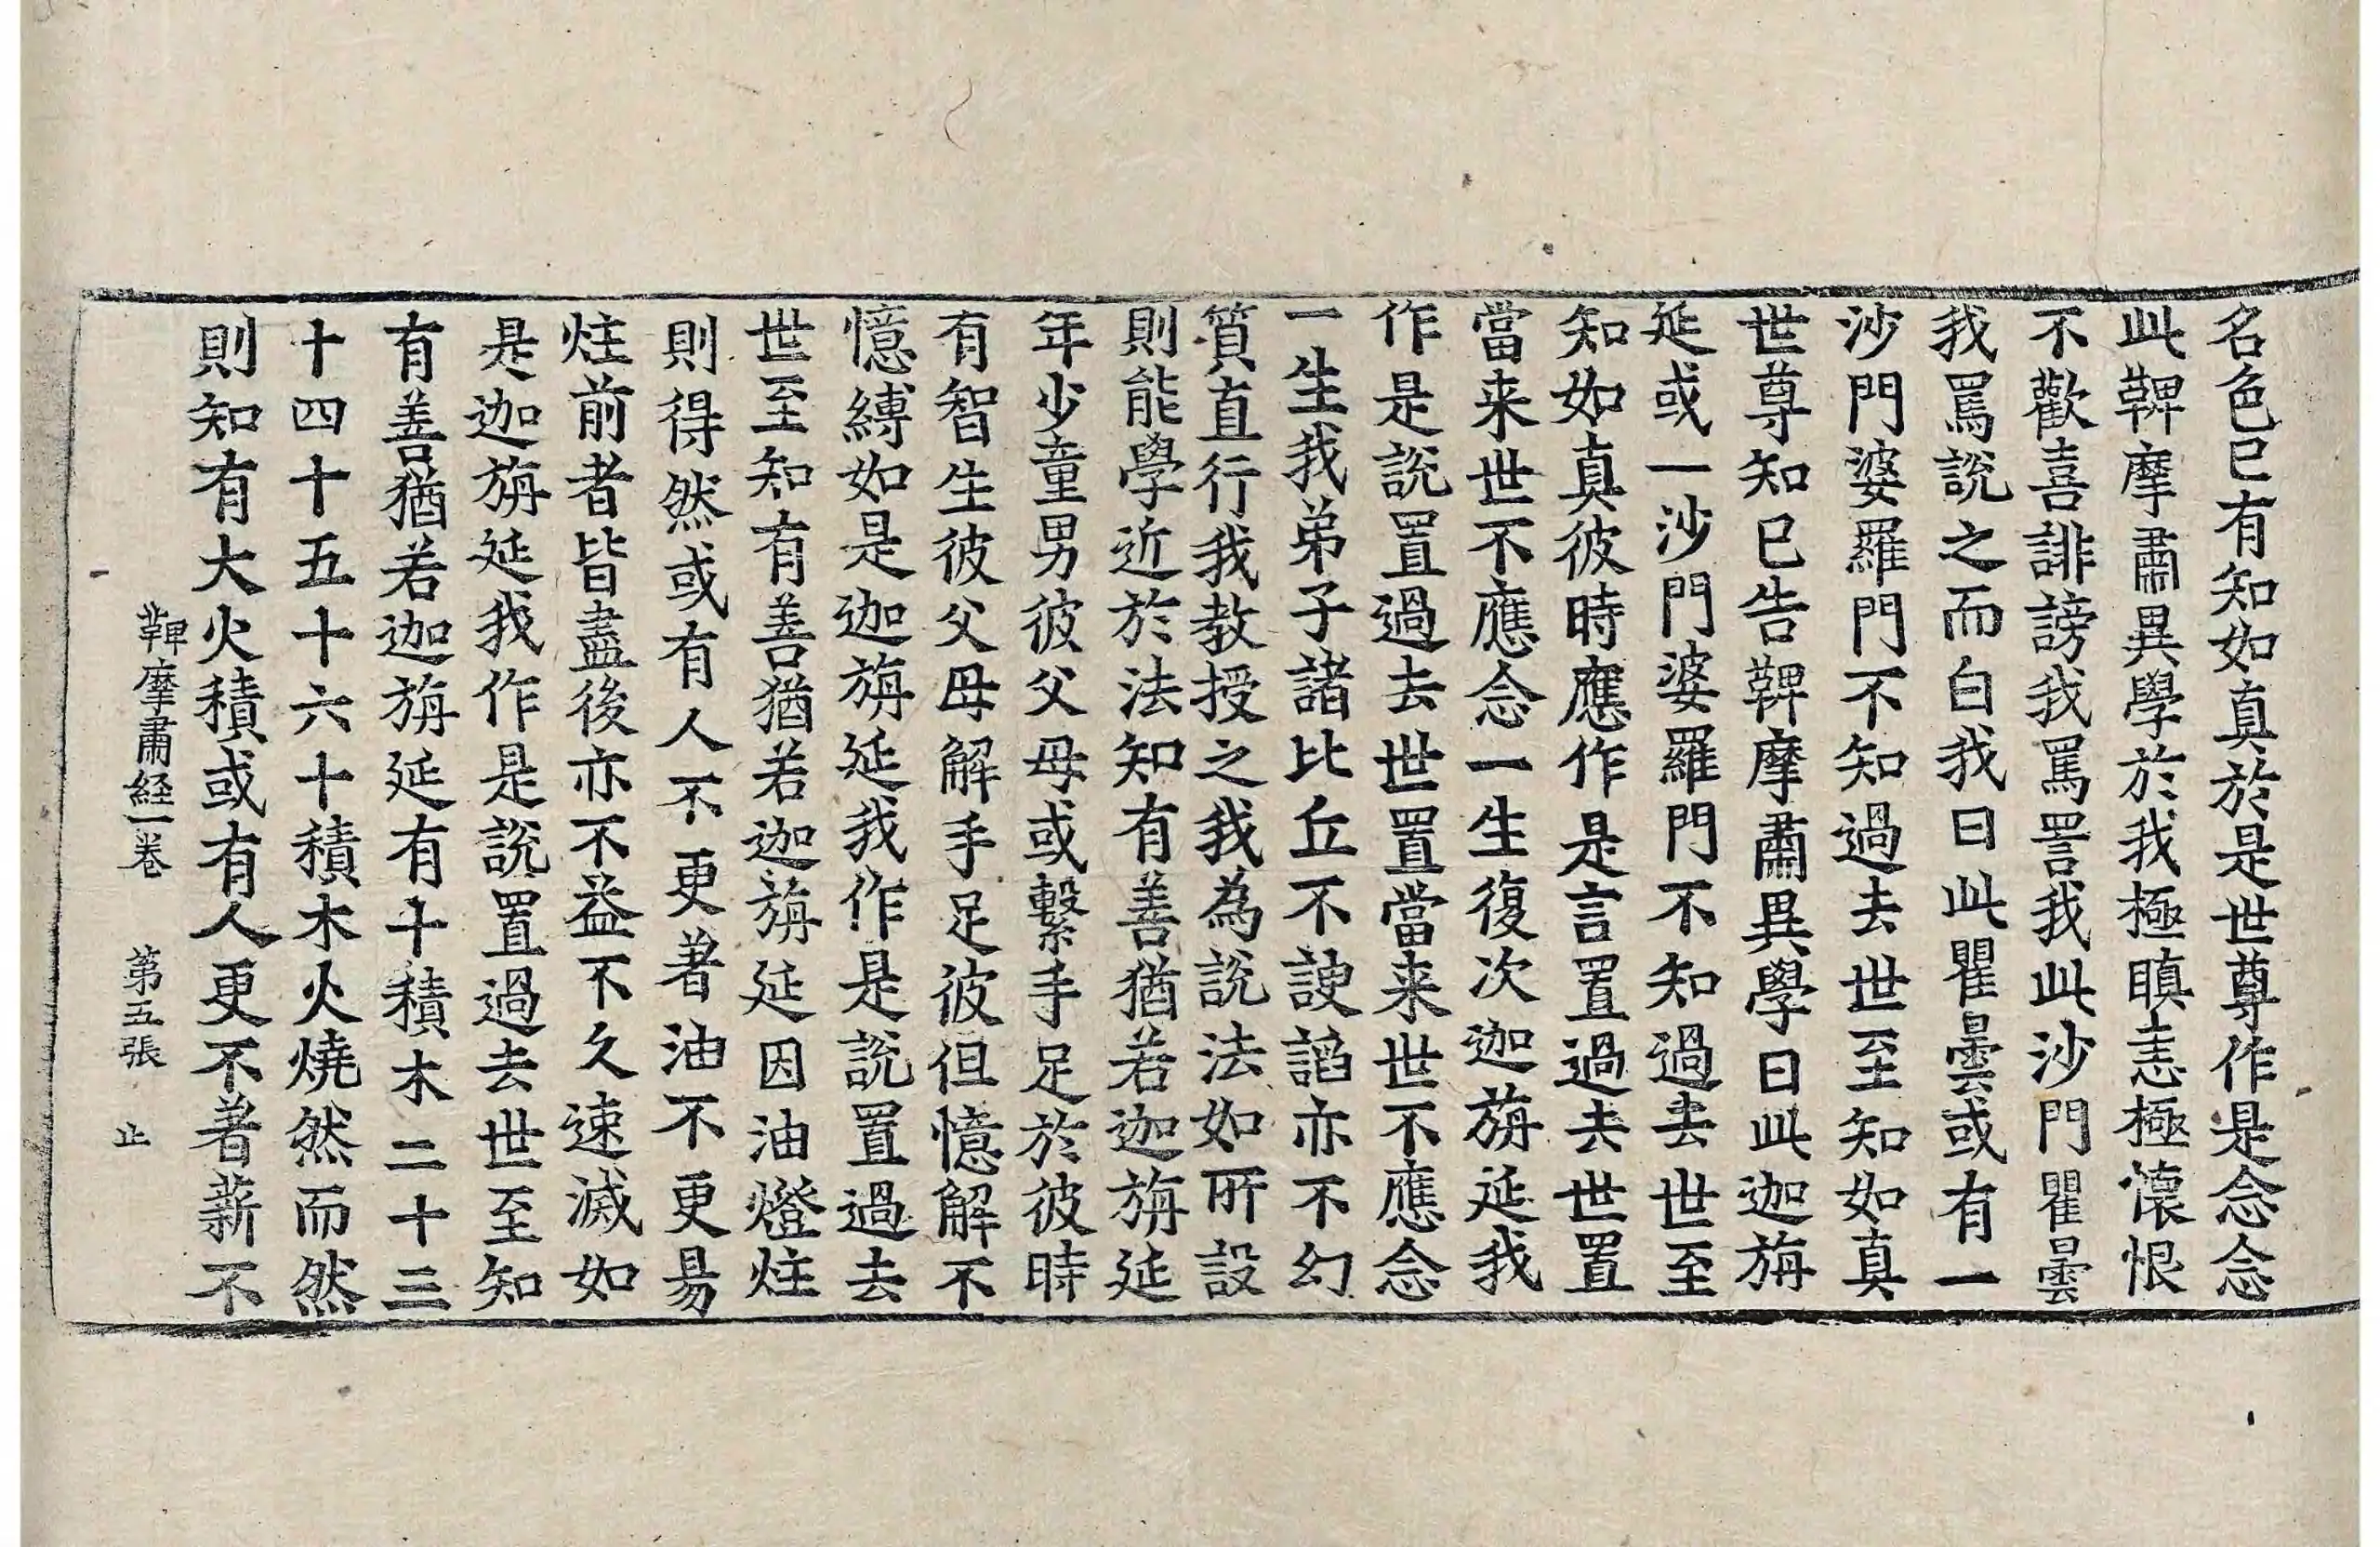 名色已有知如真於是世尊作是念念
此鞞摩肅異學於我極瞋恚極懷恨
不歡喜誹謗我罵詈我此沙門瞿曇
我罵說之而白我曰此瞿曇或有一
沙門婆羅門不知過去世至知如真
世尊知已告鞞摩肅異學曰此迦旃
延或一沙門婆羅門不知過去世至
知如真彼時應作是言置過去世置
當来世不應念一生復次迦旃延我
作是說置過去世置當来世不應念
一生我弟子諸比丘不諛諂亦不幻
質直行我教授之我為說法如所說
則能學近於法知有善猶若迦旃延
年少童男彼父母或繫手足於彼時
有智生彼父母解手足彼但憶解不
憶縛如是迦旃延我作是說置過去
世至知有善猶若迦旃延因油燈炷
則得然或有人不更著油不更易
炷前者皆盡後亦不益不久速滅如
是迦旃延我作是說置過去世至知
有善猶若迦旃延有十積木二十三
十四十五十六十積木火燒然而然
則知有大火積或有人更不著薪不
鞞摩肅経一卷 第五張 止